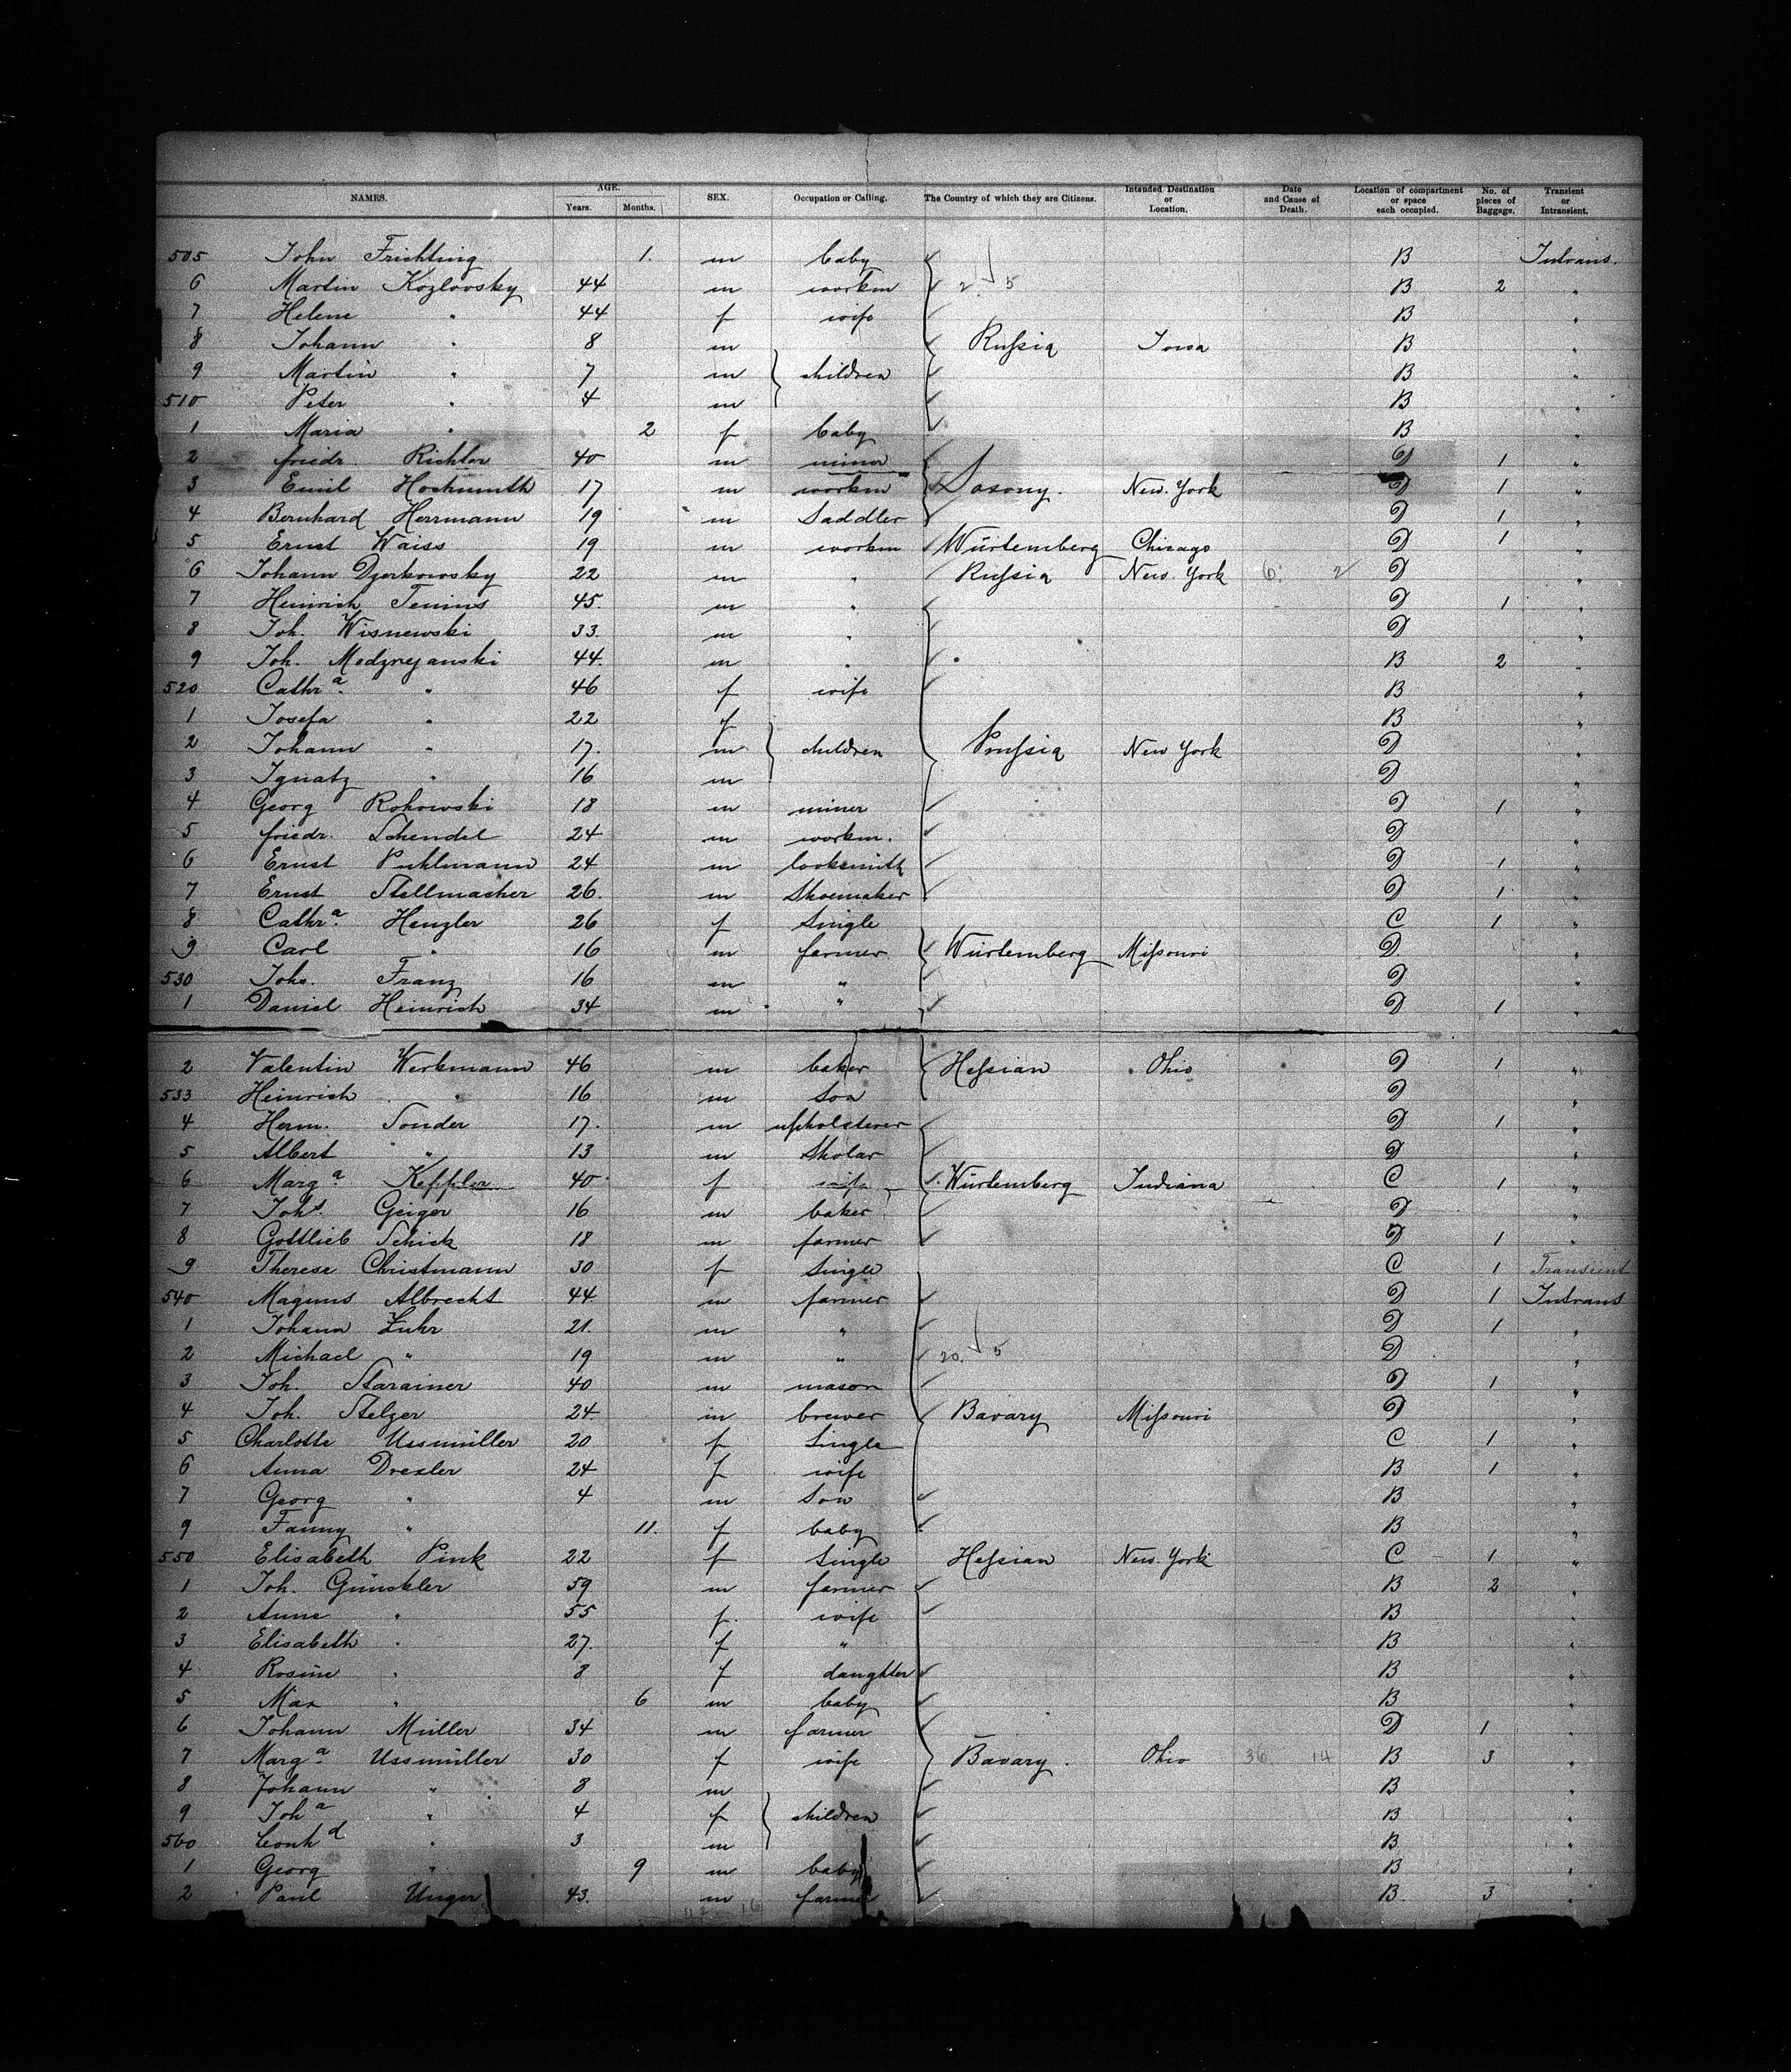 NAMES. AGE. SEX. Occupation or Calling. The Country of which they are Citizens. Intended Destination or Location. Date and Cause of Death. Location of compartment or space each occupied. No. of pieces of Baggage. Transient or Intransient.
Years. Months.
505 John Frichting 1. m baby B Intrans.
6 Martin Kozlovsky 44 m workm 2 5 B 2 "
7 Helene " 44 f wife B "
8 Johann " 8 m Russia Iowa B "
9 Martin " 7 m children B "
510 Peter " 4 m B "
1 Maria " 2 f baby B "
2 friedr. Richter 40 m miner D 1 "
3 Emil Hochmuth 17 m workm Saxony. New York D 1 "
4 Bernhard Herrmann 19 m Saddler D 1 "
5 Ernst Waiss 19 m workm Würtemberg Chicago D 1 "
6 Johann Dzerkowsky 22 m " Russia New York 6 2 D "
7 Heinrich 45. m " D 1 "
8 Joh. Wisnewski 33. m " D "
9 Joh. 44. m " B 2 "
520 Cathr.a " 46 f wife B "
1 Josefa " 22 f B "
2 Johann " 17. m children Prussia New York D "
3 Ignatz " 16 m D "
4 Georg Rohowski 18 m miner D 1 "
5 friedr. Schendel 24 m workm. D "
6 Ernst Puhlmann 24 m locksmith D 1 "
7 Ernst Stellmacher 26. m Shoemaker D 1 "
8 Cathr.a Henzler 26 f Single C 1 "
9 Carl " 16 m farmer Würtemberg Missouri D "
530 Johs. Franz 16 m " D "
1 Daniel Heinrich 34 m " D 1 "
2 Valentin Werkmann 46 m baker Hessian Ohio D 1 "
533 Heinrich " 16 m Son D "
4 Herm. Sonder 17. m upholsterer D 1 "
5 Albert " 13 m Skolar D "
6 Marg.a Keppler 40 f wife Würtemberg Indiana C 1 "
7 Johs. Geiger 16 m baker D "
8 Gottlieb Schick 18 m farmer D 1 "
9 Therese Christmann 30 f Single C 1 Transient
540 Magnus Albrecht 44. m farmer D 1 Intrans
1 Johann Zuhr 21. m " D 1 "
2 Michael " 19 m " 20. 5 D "
3 Joh. Starainer 40 m mason D 1 "
4 Joh. Stelzer 24 m brewer Bavary Missouri D "
5 Charlotte Ussmüller 20 f Single C 1 "
6 Anna Drexler 24 f wife B 1 "
7 Georg " 4 m Son B "
9 Fanny " 11. f baby B "
550 Elisabeth Pink 22 f Single Hessian New York C 1 "
1 Joh. Günskler 59 m farmer B 2 "
2 Anne " 55 f. wife B "
3 Elisabeth " 27. f " B "
4 Rosine " 8 f daughter B "
5 Max " 6 m baby B "
6 Johann Müller 34 m farmer D 1 "
7 Marg.a Ussmüller 30 f wife Bavary. Ohio 36 14 B 3 "
8 Johann " 8 m B "
9 Joh.a " 4 f children B "
560 " 3 m B "
1 Georg " 9 m baby B "
2 Paul Unger 43. m farmer B 3 "
42 16